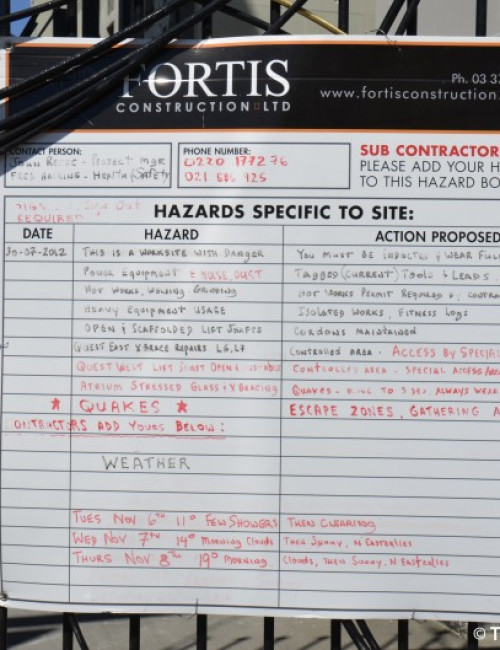 FORTIS
CONSTRUCTION LTD
Ph. 03 3
www.fortisconstruction.
CONTACT PERSON:
- Project Mgr
- Health & Safety
PHONE NUMBER:
0220 1772 76
021 686 925
SUB CONTRACTOR
PLEASE ADD YOUR H
TO THIS HAZARD BO
Sign Out
REQUIRED
HAZARDS SPECIFIC TO SITE:
DATE HAZARD ACTION PROPOSED
30-07-2012 THIS IS A WORKSITE WITH DANGER You must be inducted & WEAR FULL
Power Equipment & NOISE, DUST TAGGED (CURRENT) Tools & LEADS
HOT WORKS, Welding, Grinding HOT WORKS Permit Required
Heavy Equipment USAGE Isolated WORKS, Fitness Logs
OPEN & SCAFFOLDED LIFT SHAFTS CORDONS MAINTAINED
QUEST EAST X BRACE REPAIRS L6, L7 CONTROLLED AREA - ACCESS BY SPECIAL
QUEST WEST LIFT SHAFT OPEN CONTROLLED AREA - SPECIAL ACCESS
ATRIUM STRESSED GLASS & X BRACING QUAKES - ALWAYS WEAR
* QUAKES * ESCAPE ZONES, GATHERING A
CONTRACTORS ADD YOURS BELOW:
WEATHER
TUES NOV 6TH 11° FEW SHOWERS THEN CLEARING
WED NOV 7TH 14° Morning Clouds Then Sunny, N Easterlies
THURS NOV 8TH 19° Morning Clouds, Then Sunny, N Easterlies
© T